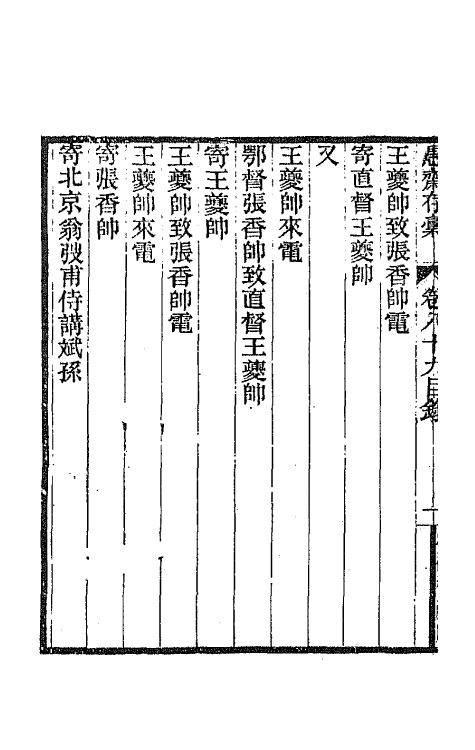 愚齋存藁 卷八十九目錄 二
王夔帥致張香帥電
寄直督王夔帥
又
王夔帥來電
鄂督張香帥致直督王夔帥
寄王夔帥
王夔帥致張香帥電
王夔帥來電
寄張香帥
寄北京翁弢甫侍講斌孫